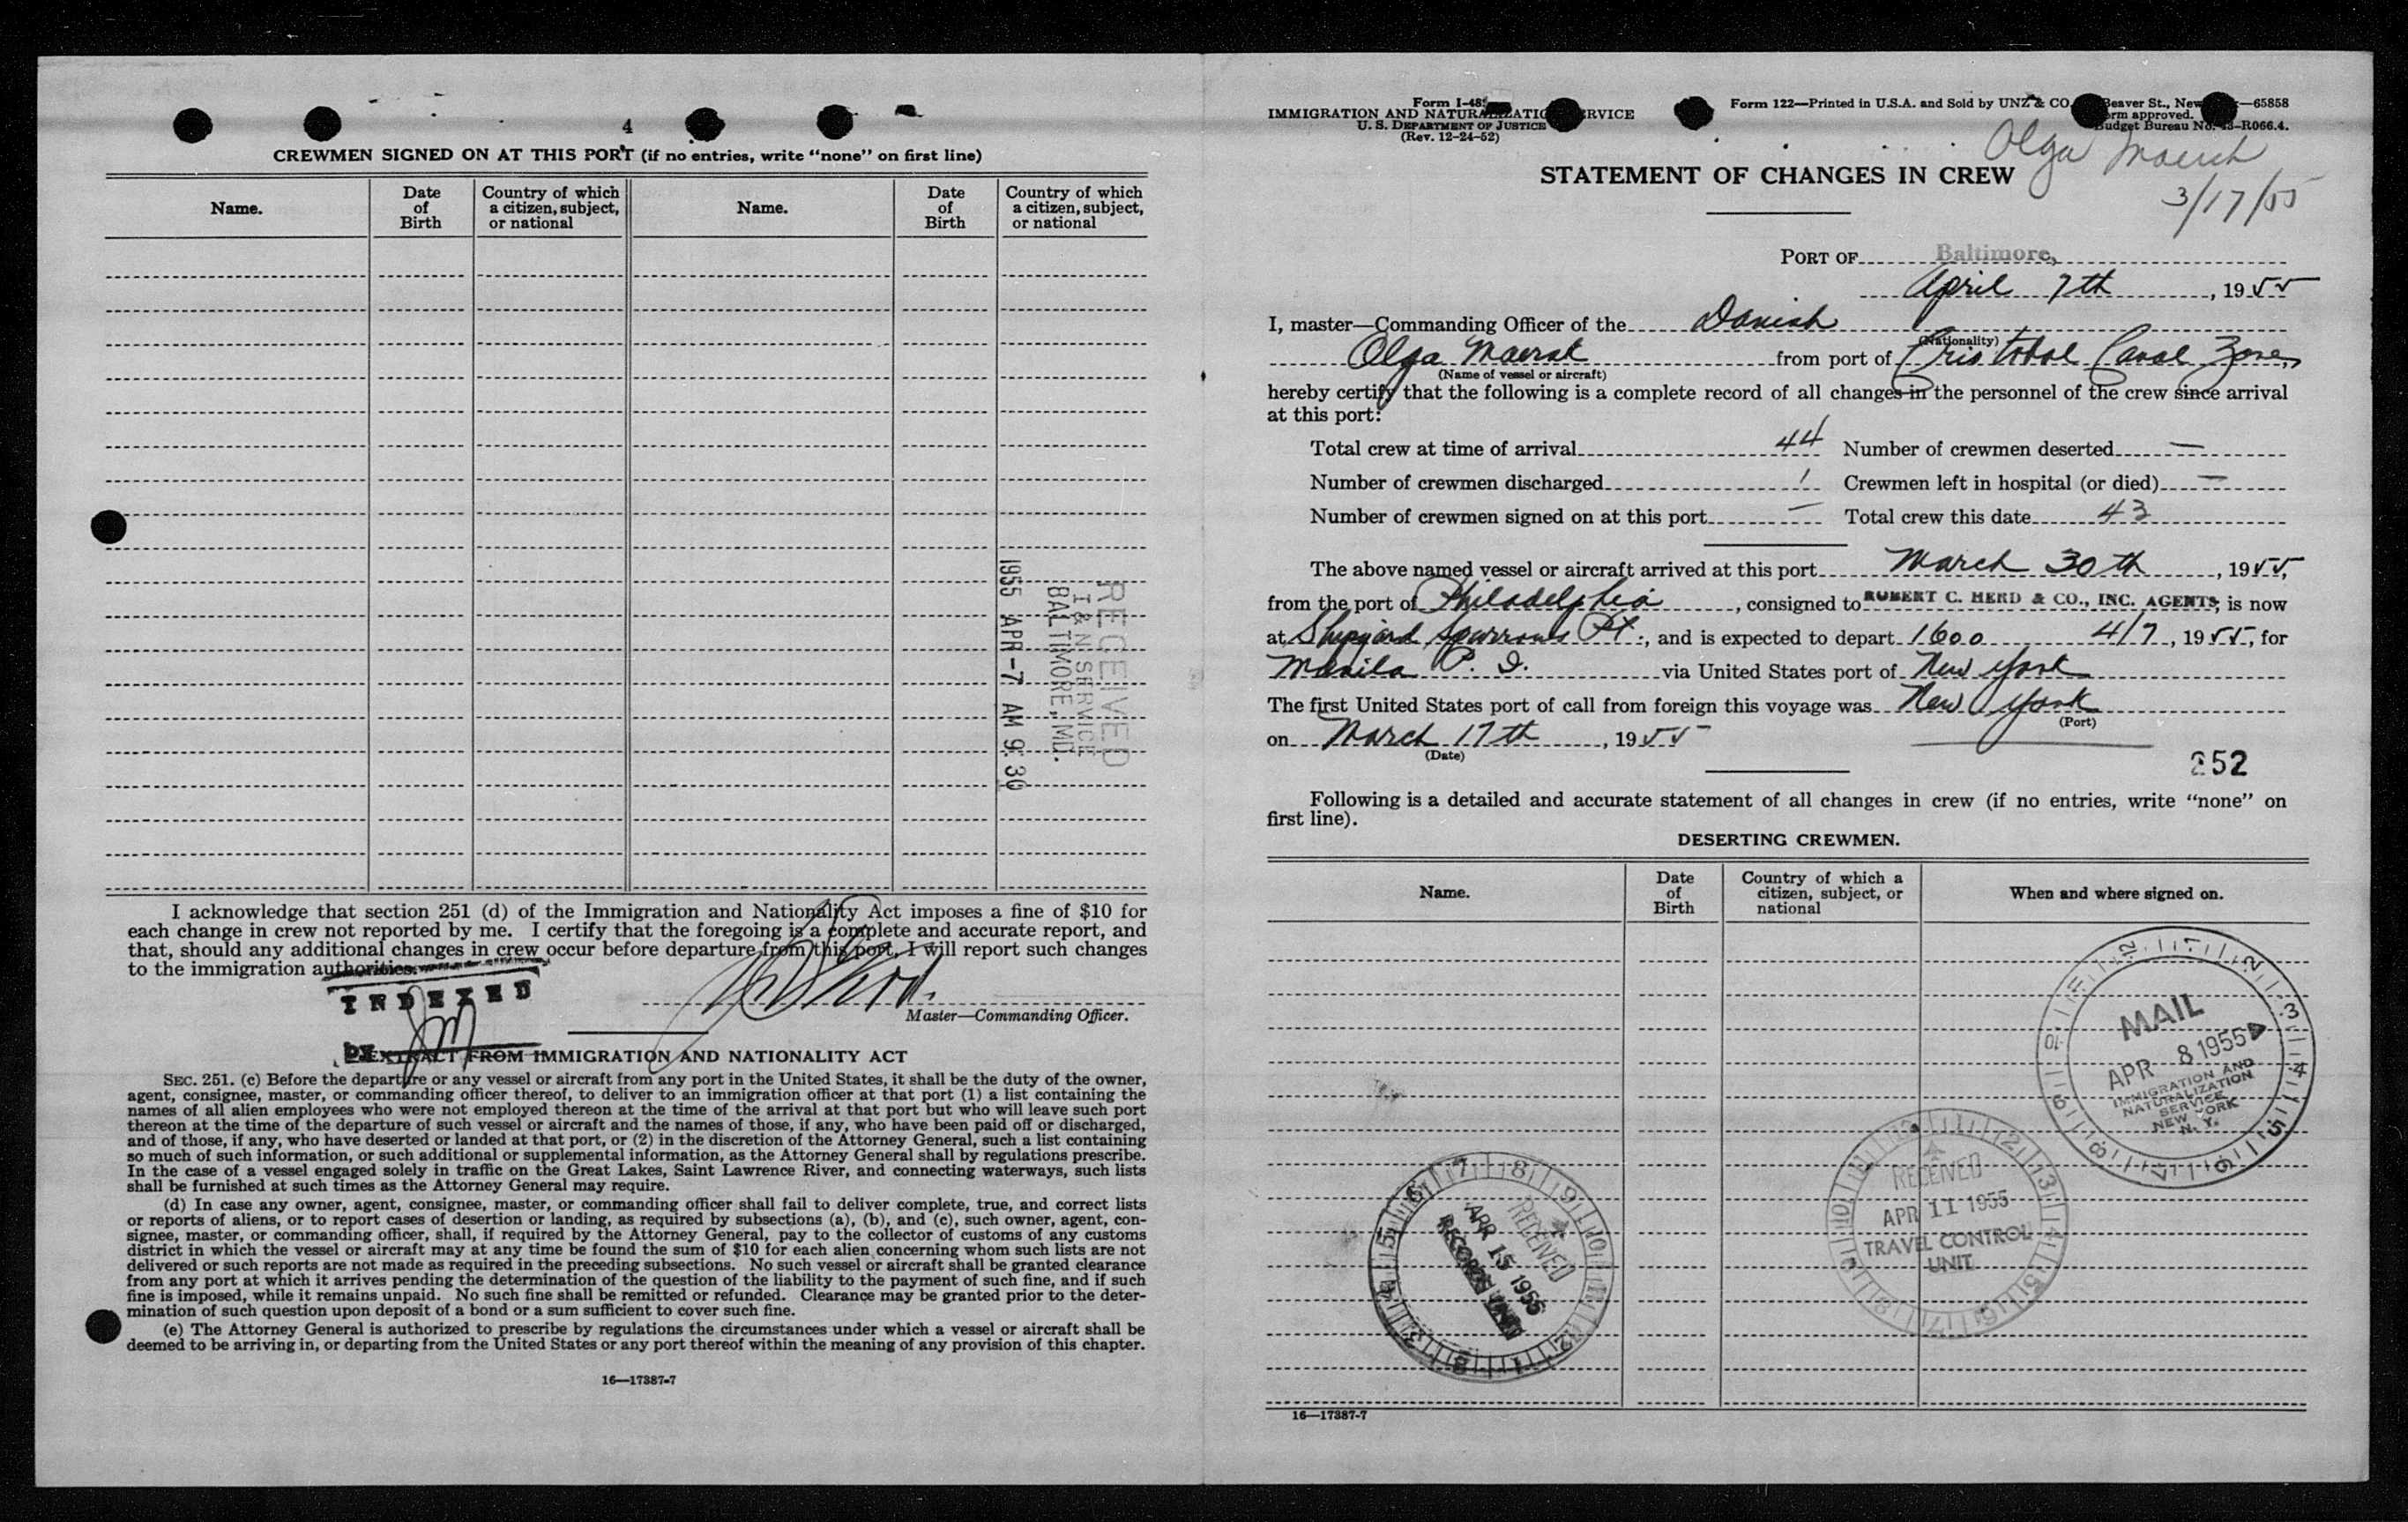 4
CREWMEN SIGNED ON AT THIS PORT (if no entries, write “none” on first line)
Name. Date of Birth Country of which a citizen, subject, or national Name. Date of Birth Country of which a citizen, subject, or national
RECEIVED
I & N SERVICE
BALTIMORE, MD.
1955 APR -7 AM 9:30
I acknowledge that section 251 (d) of the Immigration and Nationality Act imposes a fine of $10 for
each change in crew not reported by me. I certify that the foregoing is a complete and accurate report, and
that, should any additional changes in crew occur before departure from this port, I will report such changes
to the immigration authorities.
INDEXED
Master—Commanding Officer.
EXTRACT FROM IMMIGRATION AND NATIONALITY ACT
SEC. 251. (c) Before the departure or any vessel or aircraft from any port in the United States, it shall be the duty of the owner,
agent, consignee, master, or commanding officer thereof, to deliver to an immigration officer at that port (1) a list containing the
names of all alien employees who were not employed thereon at the time of the arrival at that port but who will leave such port
thereon at the time of the departure of such vessel or aircraft and the names of those, if any, who have been paid off or discharged,
and of those, if any, who have deserted or landed at that port, or (2) in the discretion of the Attorney General, such a list containing
so much of such information, or such additional or supplemental information, as the Attorney General shall by regulations prescribe.
In the case of a vessel engaged solely in traffic on the Great Lakes, Saint Lawrence River, and connecting waterways, such lists
shall be furnished at such times as the Attorney General may require.
(d) In case any owner, agent, consignee, master, or commanding officer shall fail to deliver complete, true, and correct lists
or reports of aliens, or to report cases of desertion or landing, as required by subsections (a), (b), and (c), such owner, agent, con-
signee, master, or commanding officer, shall, if required by the Attorney General, pay to the collector of customs of any customs
district in which the vessel or aircraft may at any time be found the sum of $10 for each alien concerning whom such lists are not
delivered or such reports are not made as required in the preceding subsections. No such vessel or aircraft shall be granted clearance
from any port at which it arrives pending the determination of the question of the liability to the payment of such fine, and if such
fine is imposed, while it remains unpaid. No such fine shall be remitted or refunded. Clearance may be granted prior to the deter-
mination of such question upon deposit of a bond or a sum sufficient to cover such fine.
(e) The Attorney General is authorized to prescribe by regulations the circumstances under which a vessel or aircraft shall be
deemed to be arriving in, or departing from the United States or any port thereof within the meaning of any provision of this chapter.
16—17387-7
Form I-48
IMMIGRATION AND NATURALIZATION SERVICE
U. S. DEPARTMENT OF JUSTICE
(Rev. 12-24-52)
Form 122—Printed in U.S.A. and Sold by UNZ & CO. Beaver St., New —65858
Form approved.
Budget Bureau No. 43-R066.4.
Olga Maersk
3/17/55
STATEMENT OF CHANGES IN CREW
PORT OF Baltimore,
April 7th, 1955
I, master—Commanding Officer of the Danish
(Nationality)
Olga Maersk from port of Cristobal Canal Zone,
(Name of vessel or aircraft)
hereby certify that the following is a complete record of all changes in the personnel of the crew since arrival
at this port:
Total crew at time of arrival 44 Number of crewmen deserted —
Number of crewmen discharged 1 Crewmen left in hospital (or died) —
Number of crewmen signed on at this port — Total crew this date 43
The above named vessel or aircraft arrived at this port March 30th, 1955,
from the port of Philadelphia, consigned to ROBERT C. HERD & CO., INC. AGENTS, is now
at Shipyard Sparrows Pt., and is expected to depart 1600 4/7, 1955, for
Manila P. I. via United States port of New York
The first United States port of call from foreign this voyage was New York
(Port)
on March 17th, 1955
(Date)
252
Following is a detailed and accurate statement of all changes in crew (if no entries, write “none” on
first line).
DESERTING CREWMEN.
Name. Date of Birth Country of which a citizen, subject, or national When and where signed on.
MAIL
APR 8 1955
IMMIGRATION AND
NATURALIZATION
SERVICE
NEW YORK
N. Y.
RECEIVED
APR 11 1955
TRAVEL CONTROL
UNIT
RECEIVED
APR 15 1955
RECORDS UNIT
16—17387-7